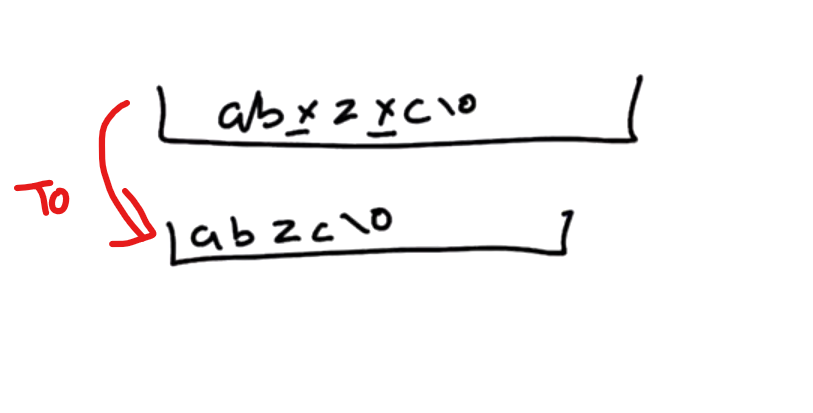 abxzxc\0
To
abzc\0